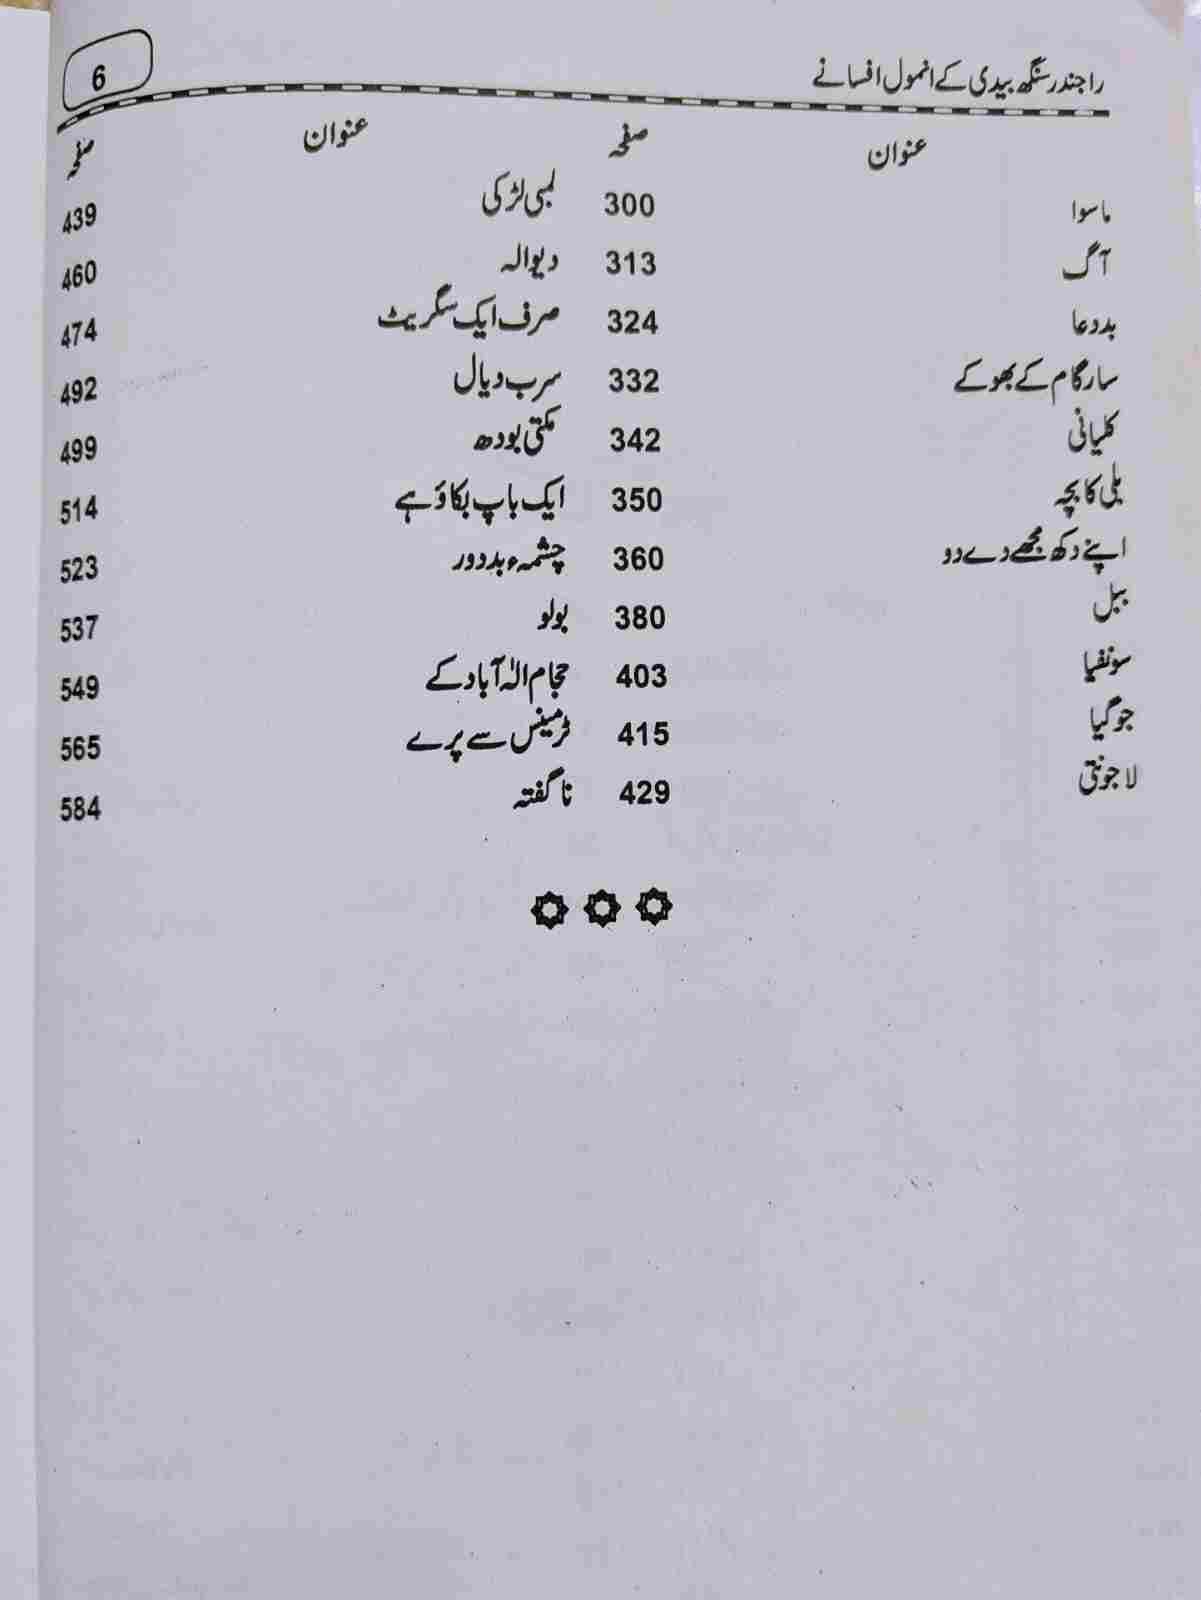 راجندر سنگھ بیدی کے انمول افسانے 6
عنوان صفحہ عنوان صفحہ
ماسوا 300 لمبی لڑکی 439
آگ 313 دیوالہ 460
بددعا 324 صرف ایک سگریٹ 474
سارگام کے بھوکے 332 سرب دیال 492
کلیانی 342 مکتی بودھ 499
بلی کا بچہ 350 ایک باپ بکاؤ ہے 514
اپنے دکھ مجھے دے دو 360 چشمہء بددور 523
ببل 380 بولو 537
سونفیا 403 حجام الٰہ آباد کے 549
جوگیا 415 ٹرمینس سے پرے 565
لاجونتی 429 ناگفتہ 584